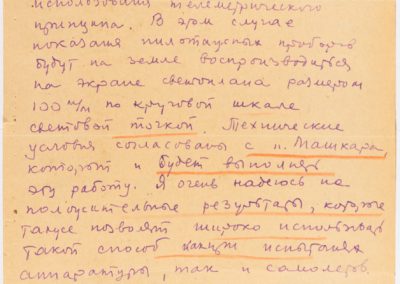 использования телеметрического
принципа. В этом случае
показания пилотажных приборов
будут на земле воспроизводиться
на экране светоплана размером
100 м/м по круговой шкале
световой точкой. Технические
условия согласованы с п. Машкара,
который и будет выполнять
эту работу. Я очень надеюсь на
положительные результаты, которые
также позволят широко использовать
такой способ испытания
аппаратуры, так и самолетов.